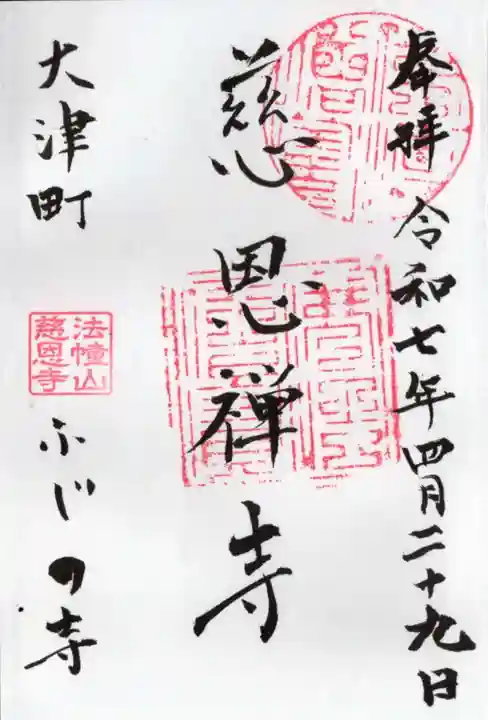 奉拝 令和七年四月二十九日
慈恩禅寺
大津町 ふじの寺
法幢山
慈恩寺